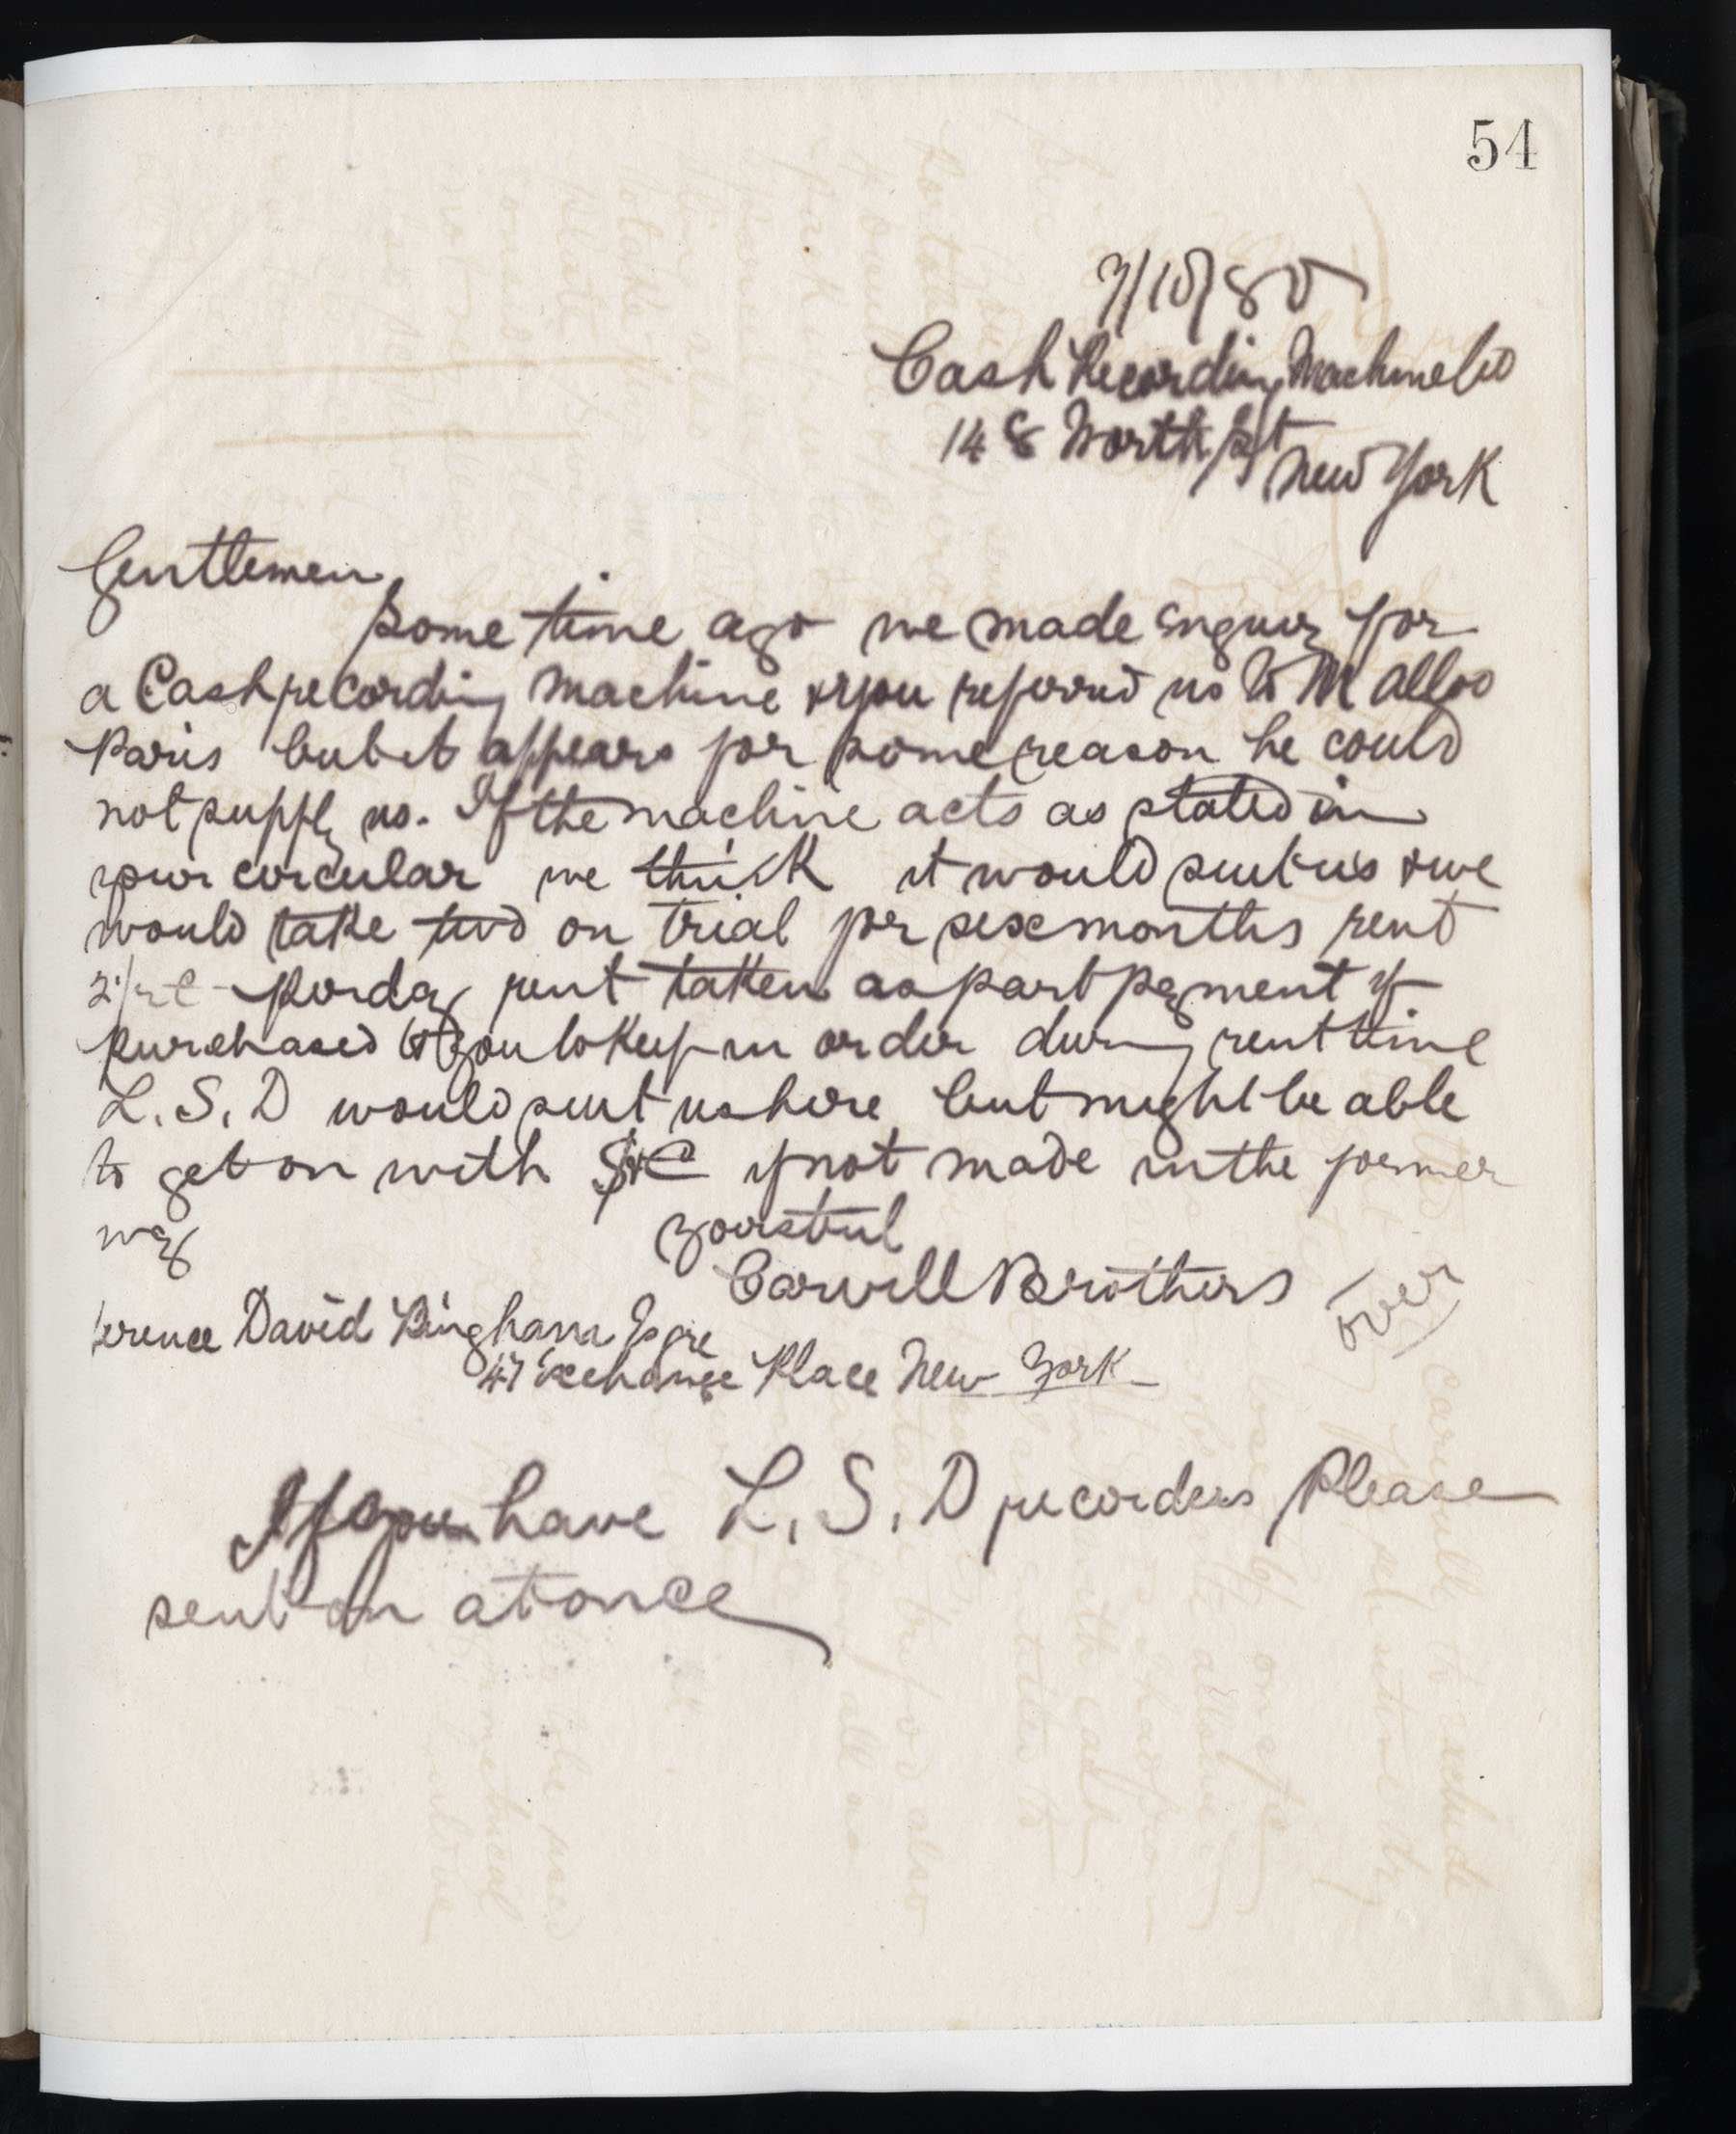 54
Cash Recording Machine Co
148 Worth St
New York
Gentlemen
Some time ago we made enquiry for
a Cash recording machine & you referred us to M
Paris but it appears for some reason he could
not supply us. If the machine acts as stated in
your circular we think it would suit us & we
would take two on trial for six months rent
per day rent taken as part payment if
purchased & you to keep in order during rent time
L. S. D would suit us here but might be able
to get on with $ & C if not made in the former
way
Yours trul
Carvill Brothers
over
David Bingham Esqre
47 Exchange Place New York
If you have L. S. D recorders Please
sent on at once